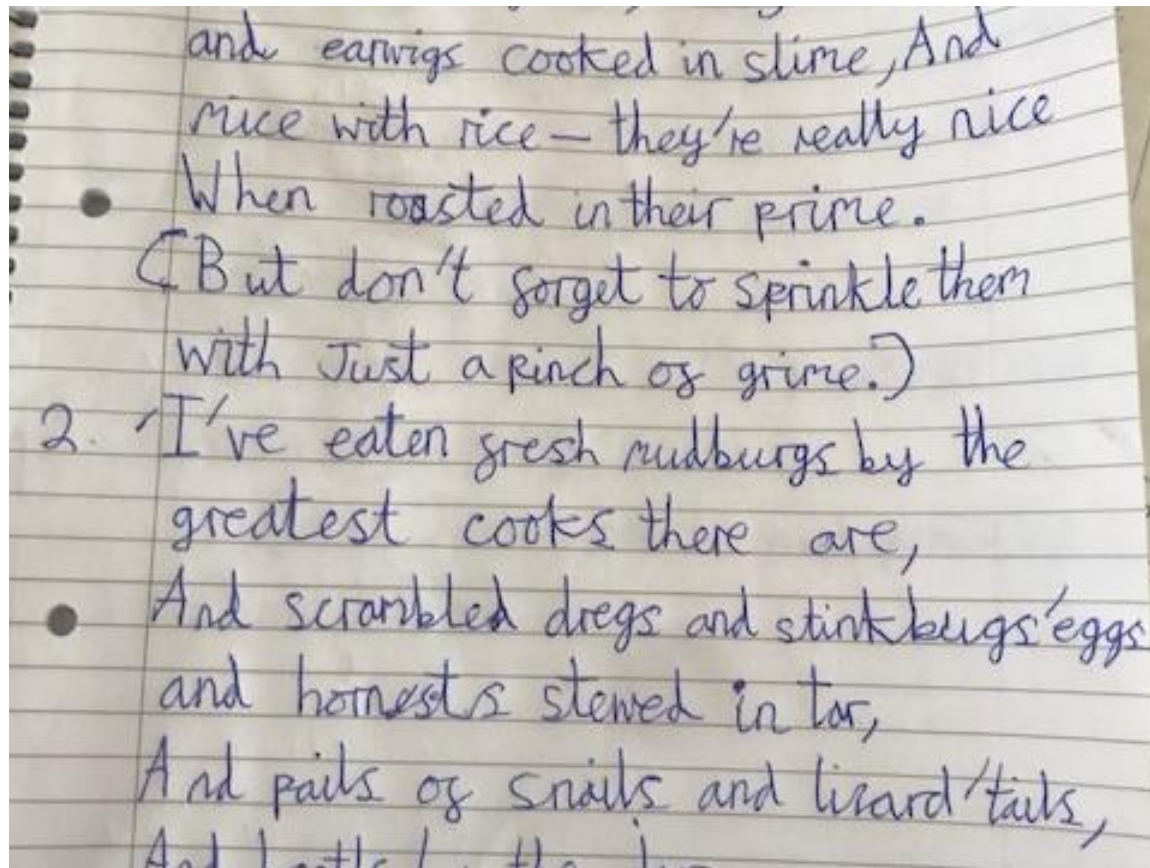 and earwigs cooked in slime, And
mice with rice – they're really nice
When roasted in their prime.
(But don't forget to sprinkle them
with Just a pinch of grime.)
2. 'I've eaten fresh mudburgs by the
greatest cooks there are,
And scrambled dregs and stinkbugs' eggs
and hornests stewed in tar,
And pails of snails and lizard' tails,